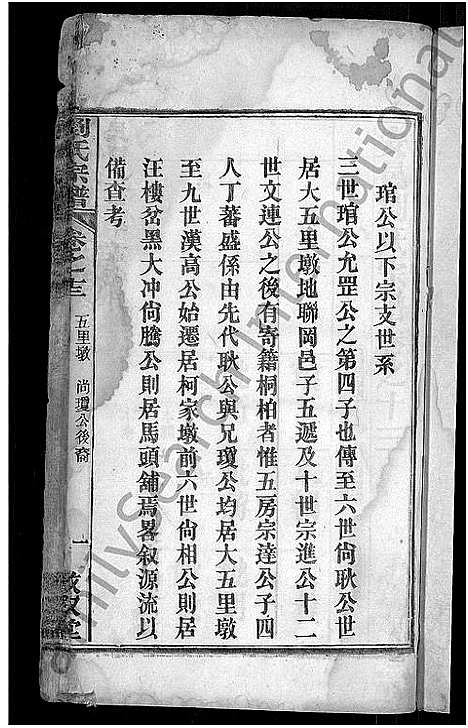 琯公以下宗支世系
三世琯公允罡公之第四子也傳至六世尙耿公世
居大五里墩地聯岡邑子五遞及十世宗進公十二
世文連公之後有寄籍桐柏者惟五房宗達公子四
人丁蕃盛係由先代耿公與兄瓊公均居大五里墩
至九世漢高公始遷居柯家墩前六世尙相公則居
汪樓岔黑大冲尙騰公則居馬頭舖焉畧叙源流以
備查考
劉氏宗譜
卷之十三
五里墩 尚瓊公後裔
一
堂
FamilySearch International